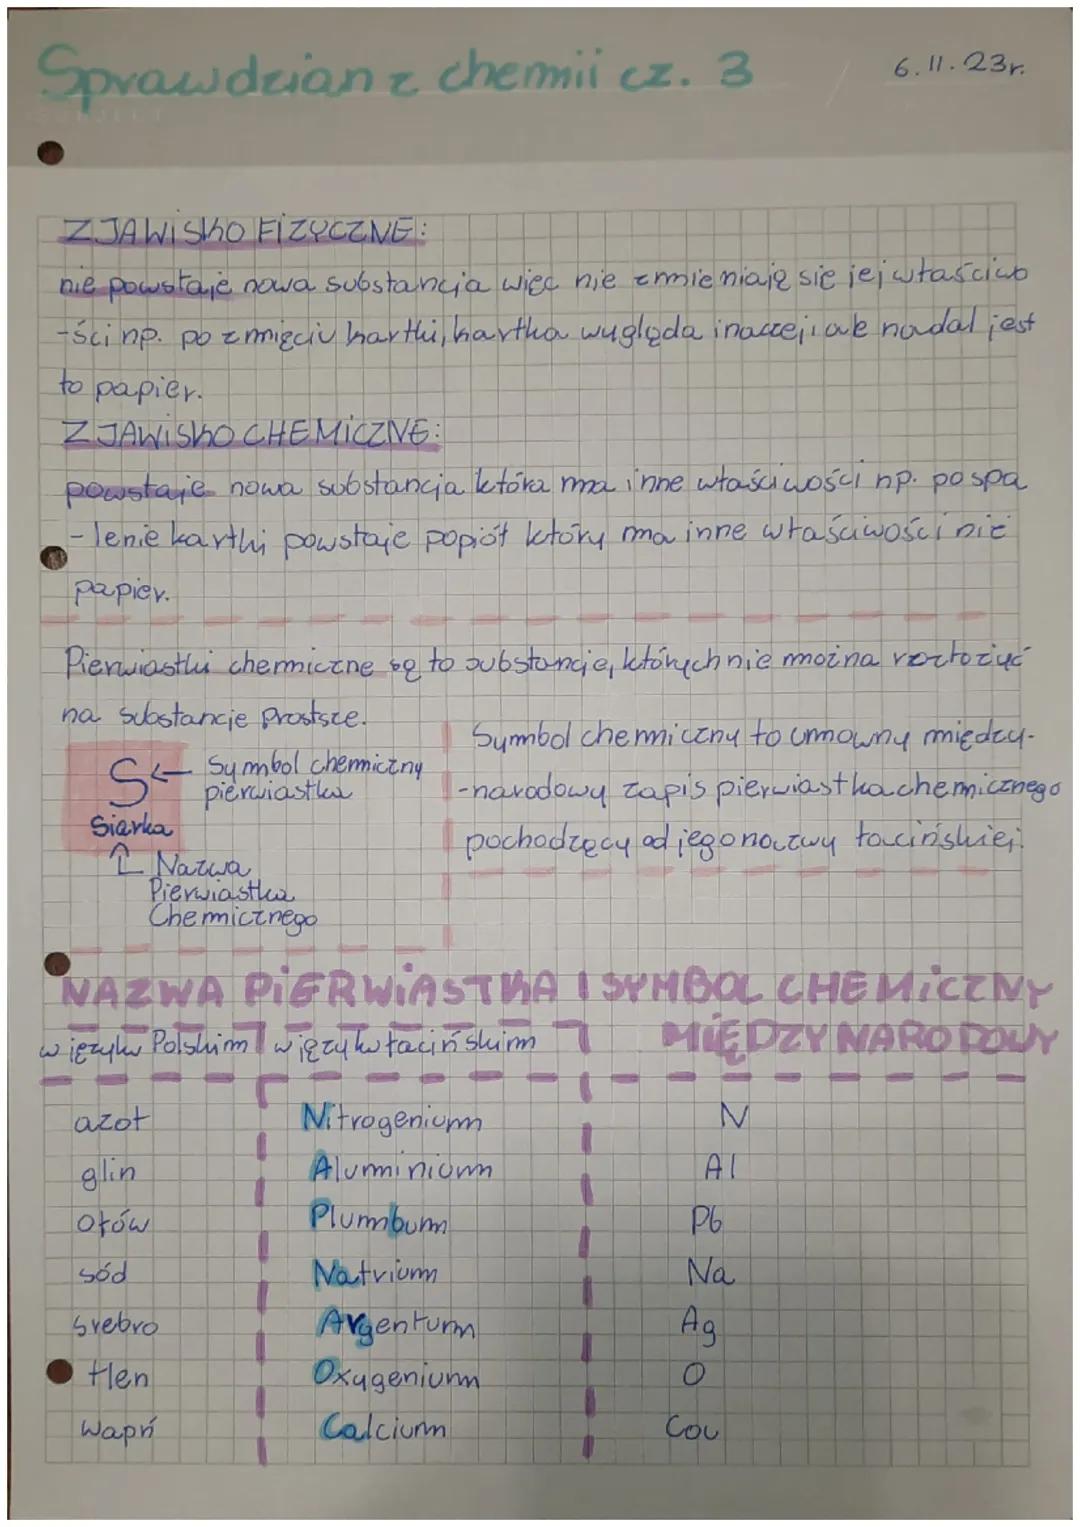 Sprawdzian z chemii cz. 3
6.11.23r.
ZJAWISKO FIZYCZNE:
nie powstaje nowa substancja więc nie zmieniają się jej właściwo
-ści np. po zmięciu kartki, kartka wygląda inaczej, ale nadal jest
to papier.
ZJAWISKO CHEMICZNE:
powstaje nowa substancja która ma inne właściwości np. po spa
-lenie kartki powstaje popiół który ma inne właściwości niż
papier.
Pierwiastki chemiczne są to substancje, których nie można rozłożyć
na substancje prostsze.
S ← Symbol chemiczny
pierwiastka
Siarka
Nazwa
Pierwiastka
Chemicznego
Symbol chemiczny to umowny między-
-narodowy zapis pierwiastka chemicznego
pochodzący od jego nazwy łacińskiej.
NAZWA PIERWIASTKA I SYMBOL CHEMICZNY
MIĘDZYNARODOWY
w języku Polskim w języku łacińskim
azot Nitrogenium N
glin Aluminium Al
ołów Plumbum Pb
sód Natrium Na
srebro Argentum Ag
tlen Oxygenium O
wapń Calcium Ca